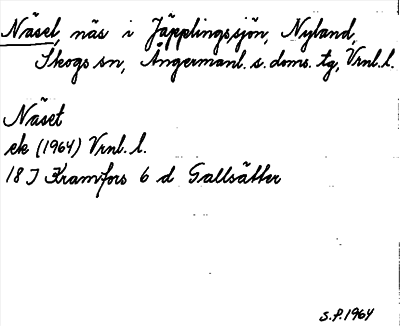 Näset, näs i Jäpplingssjön, Nyland,
Skogs sn, Ångermanl. s. doms. tg, Vrnl. l.
Näset
ek (1964) Vrnl. l.
18 J Kramfors 6 d Gallsätter
S.P. 1964